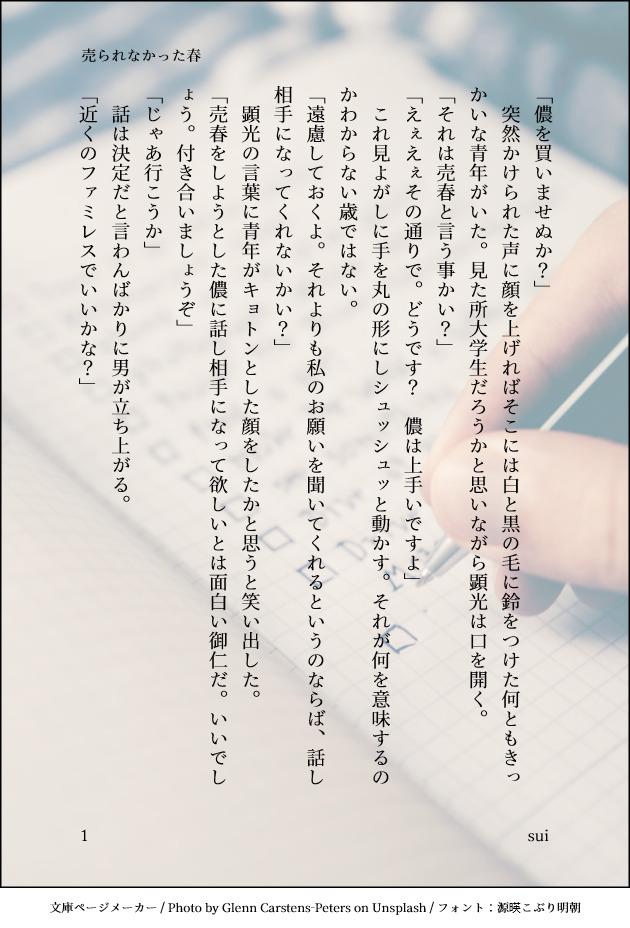 売られなかった春
「儂を買いませぬか？」
　突然かけられた声に顔を上げればそこには白と黒の毛に鈴をつけた何ともきっ
かいな青年がいた。見た所大学生だろうかと思いながら顕光は口を開く。
「それは売春と言う事かい？」
「えぇえぇその通りで。どうです？　儂は上手いですよ」
　これ見よがしに手を丸の形にしシュッシュッと動かす。それが何を意味するの
かわからない歳ではない。
「遠慮しておくよ。それよりも私のお願いを聞いてくれるというのならば、話し
相手になってくれないかい？」
　顕光の言葉に青年がキョトンとした顔をしたかと思うと笑い出した。
「売春をしようとした儂に話し相手になって欲しいとは面白い御仁だ。いいでし
ょう。付き合いましょうぞ」
「じゃあ行こうか」
　話は決定だと言わんばかりに男が立ち上がる。
「近くのファミレスでいいかな？」
1
sui
文庫ページメーカー / Photo by Glenn Carstens-Peters on Unsplash / フォント：源暎こぶり明朝